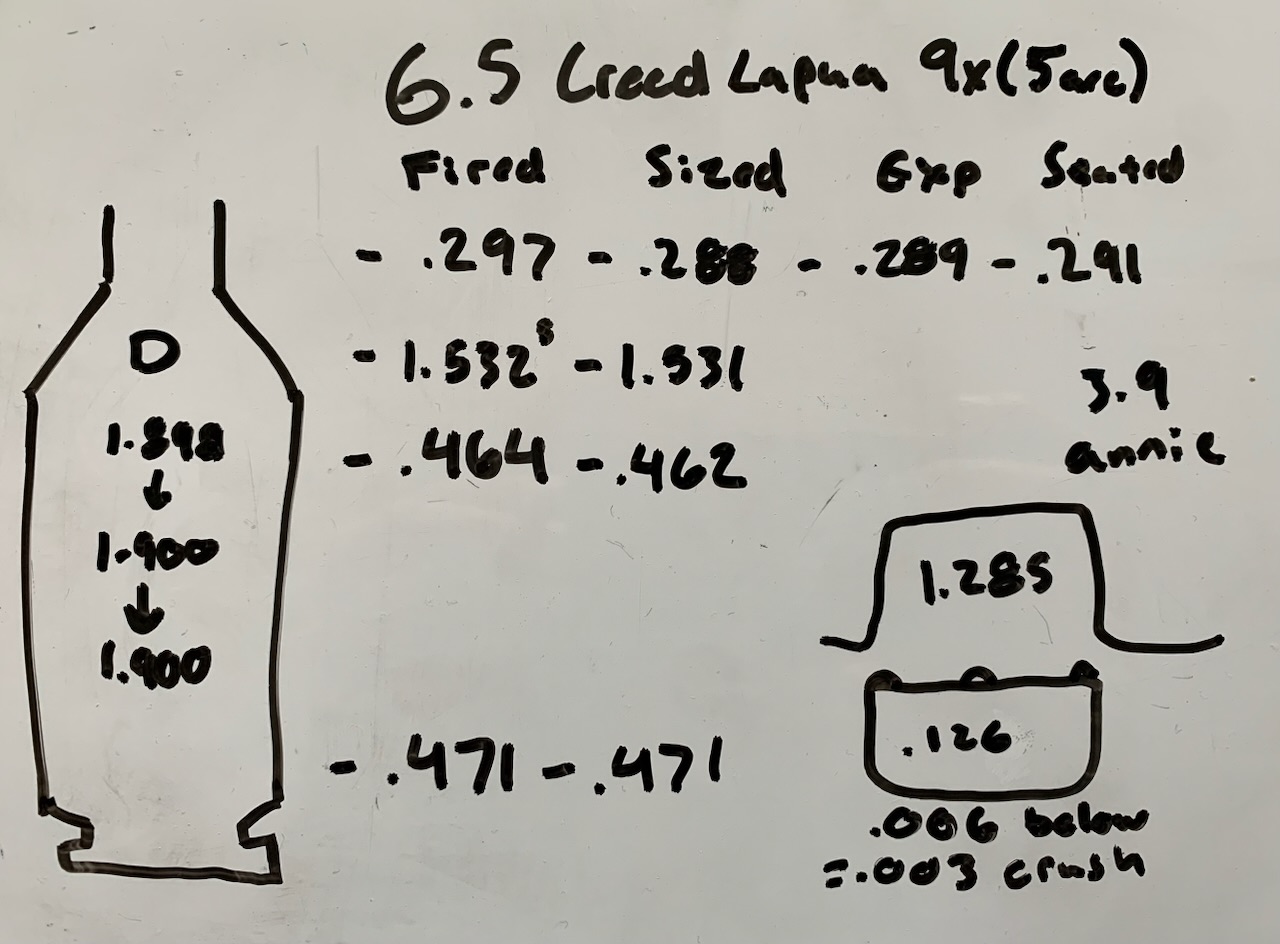 6.5 Creed Lapua 9x (5 arc)
Fired Sized Exp Seated
- .297 - .288 - .289 - .291
- 1.532⁸ - 1.531
- .464 - .462
3.9
annie
D
1.898
↓
1.900
↓
1.900
1.285
.126
.006 below
=.003 crush
- .471 - .471